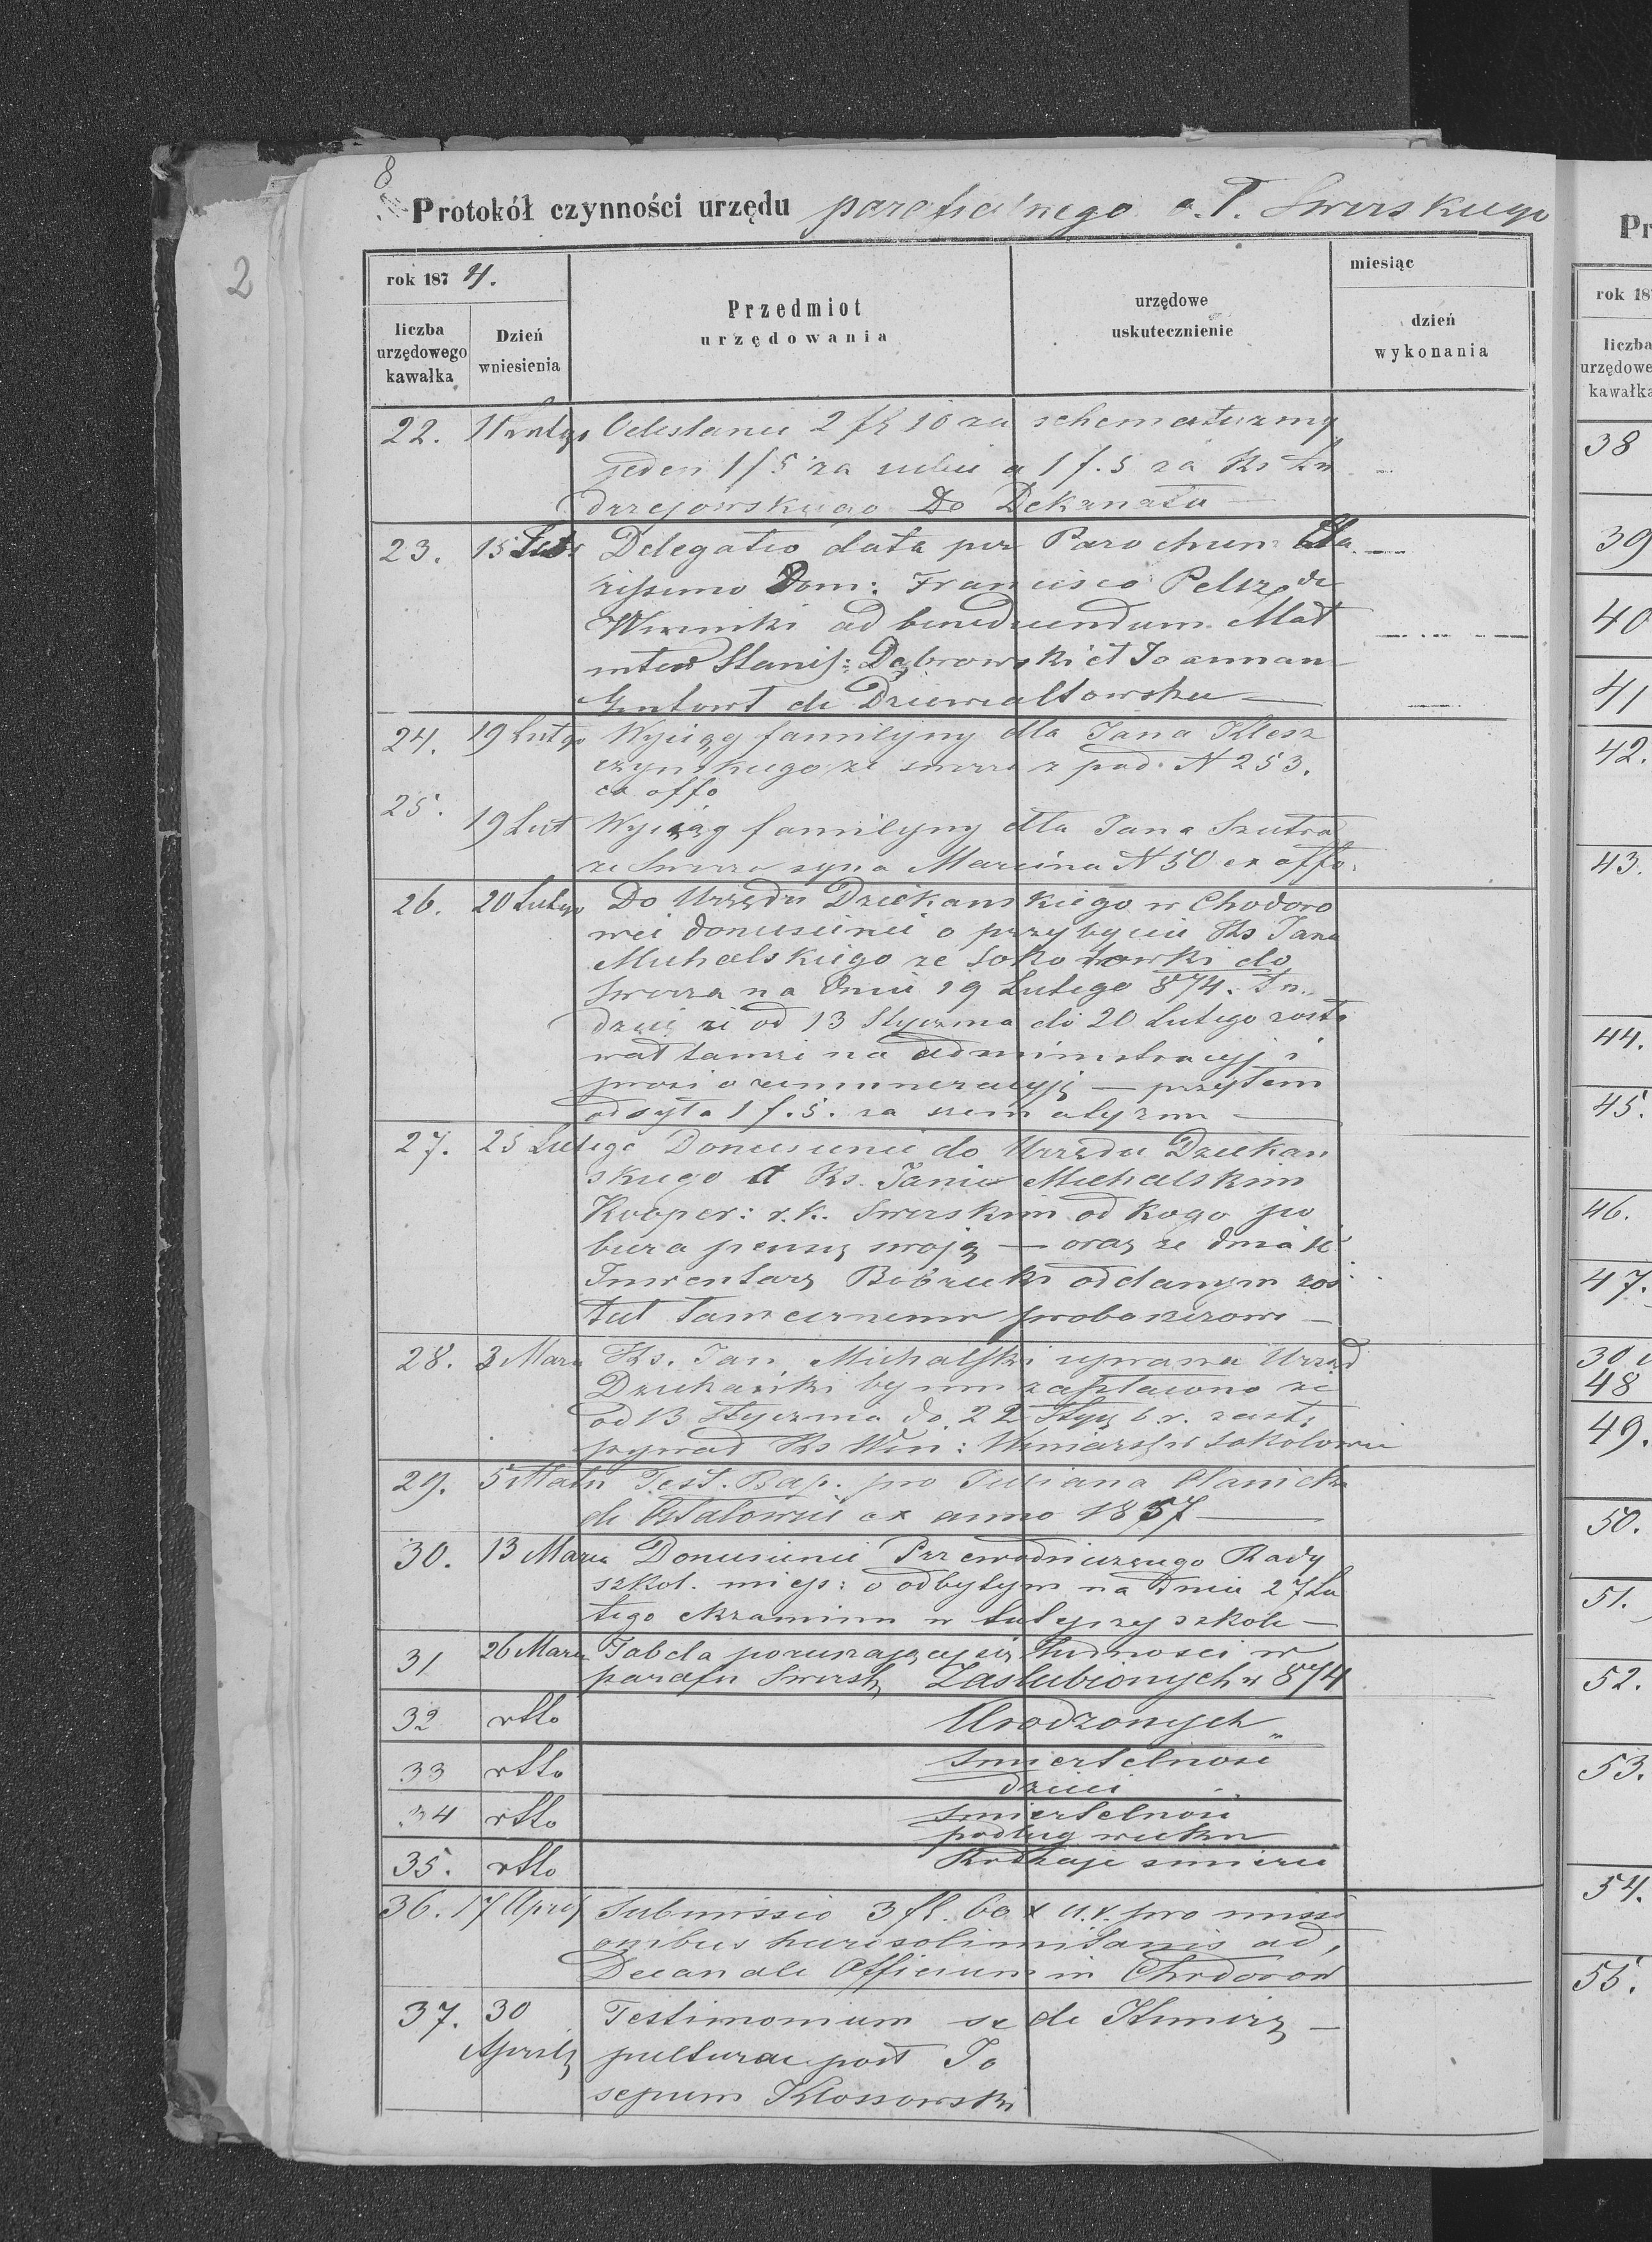 8
2
Protokół czynności urzędu parafialnego o. Ł. Swirskiego
rok 1874.
miesiąc
liczba urzędowego kawałka
Dzień wniesienia
Przedmiot urzędowania
urzędowe uskutecznienie
dzień wykonania
22. Lutego Odesłanie 2 fl 10 za schematyzmy
jeden 1 f 5 za siebie a 1 f. 5 za Ks An
drzejowskiego Do Dekanatu
23. 15 Lut. Delegatio data per Parochum Cla
rissimo Dom: Francisco Pelsz de
ad benedicendum Mat
Stanis: Dąbrowski et Joannam
Gintowt de Dziewałtowska
24. 19 Lutgo Wyciąg familijny dla Jana Klesz
czyńskiego ze Swirza z pod N 253.
ex offo
25. 19 Lut Wyciąg familijny dla Jana Szutra
ze Swirza syna Marcina N 50 ex offo.
26. 20 Lutego Do Urzędu Dziekanskiego w Chodoro
wei donesienie o przybyciu Ks Jana
Michalskiego ze Sokołowki do
Swirza na dniu 19 Lutego 874. Tu
dzież że od 13 Stycznia do 20 Lutego zosta
wał tamże na administracyj i
prosi o remuneracyję — przytem
odsyła 1 f. 5. za szematyzm —
27. 25 Lutego Donesienie do Urzędu Dziekan
skiego o Ks. Janie Michalskim
Kooper: r. k. Swirskim od kogo po
biera pensyę swoją — oraz że dnia
Inwentarz Bobrecki oddanym zos
tał tamecznemu proboszczowi —
28. 3 Marca Ks. Jan Michalski wzywa Urząd
Dziekański by mu zapłacono że
od 13 Stycznia do 22 Stycz b.r. zastę
pywał Ks Win: w Sokołowce
29. 5 Mar Test. Bap. pro Juliana
de ex anno 1857 —
30. 13 Marca Donesienie Przewodniczącego Rady
szkol. miejs: o odbytym na dniu 27 Lu
tego ekzaminu w tutejszej szkole —
31 26 Marca Tabela poruszającej się ludności w
parafii Swirsk. Zaslubionych w 874
32 dtto Urodzonych "
33 dtto Smiertelność
dzieci
34 dtto Smiertelność
podług wieku
35. dtto Rodzaje smierci
36. 17 April Submissio 3 fl. 60 x a.v. pro missi
onibus hierosolimitanis ad
Decanale Officium in Chodorow
37. 30 Aprilis Testimonium se
pulturae post Jo
sepum Klossowski
de Kimirz —
Pr
rok 18
liczba
urzędowe
kawałka
38
39
40
41
42.
43.
44.
45.
46.
47.
30
48
49.
50.
51.
52.
53.
54.
55.